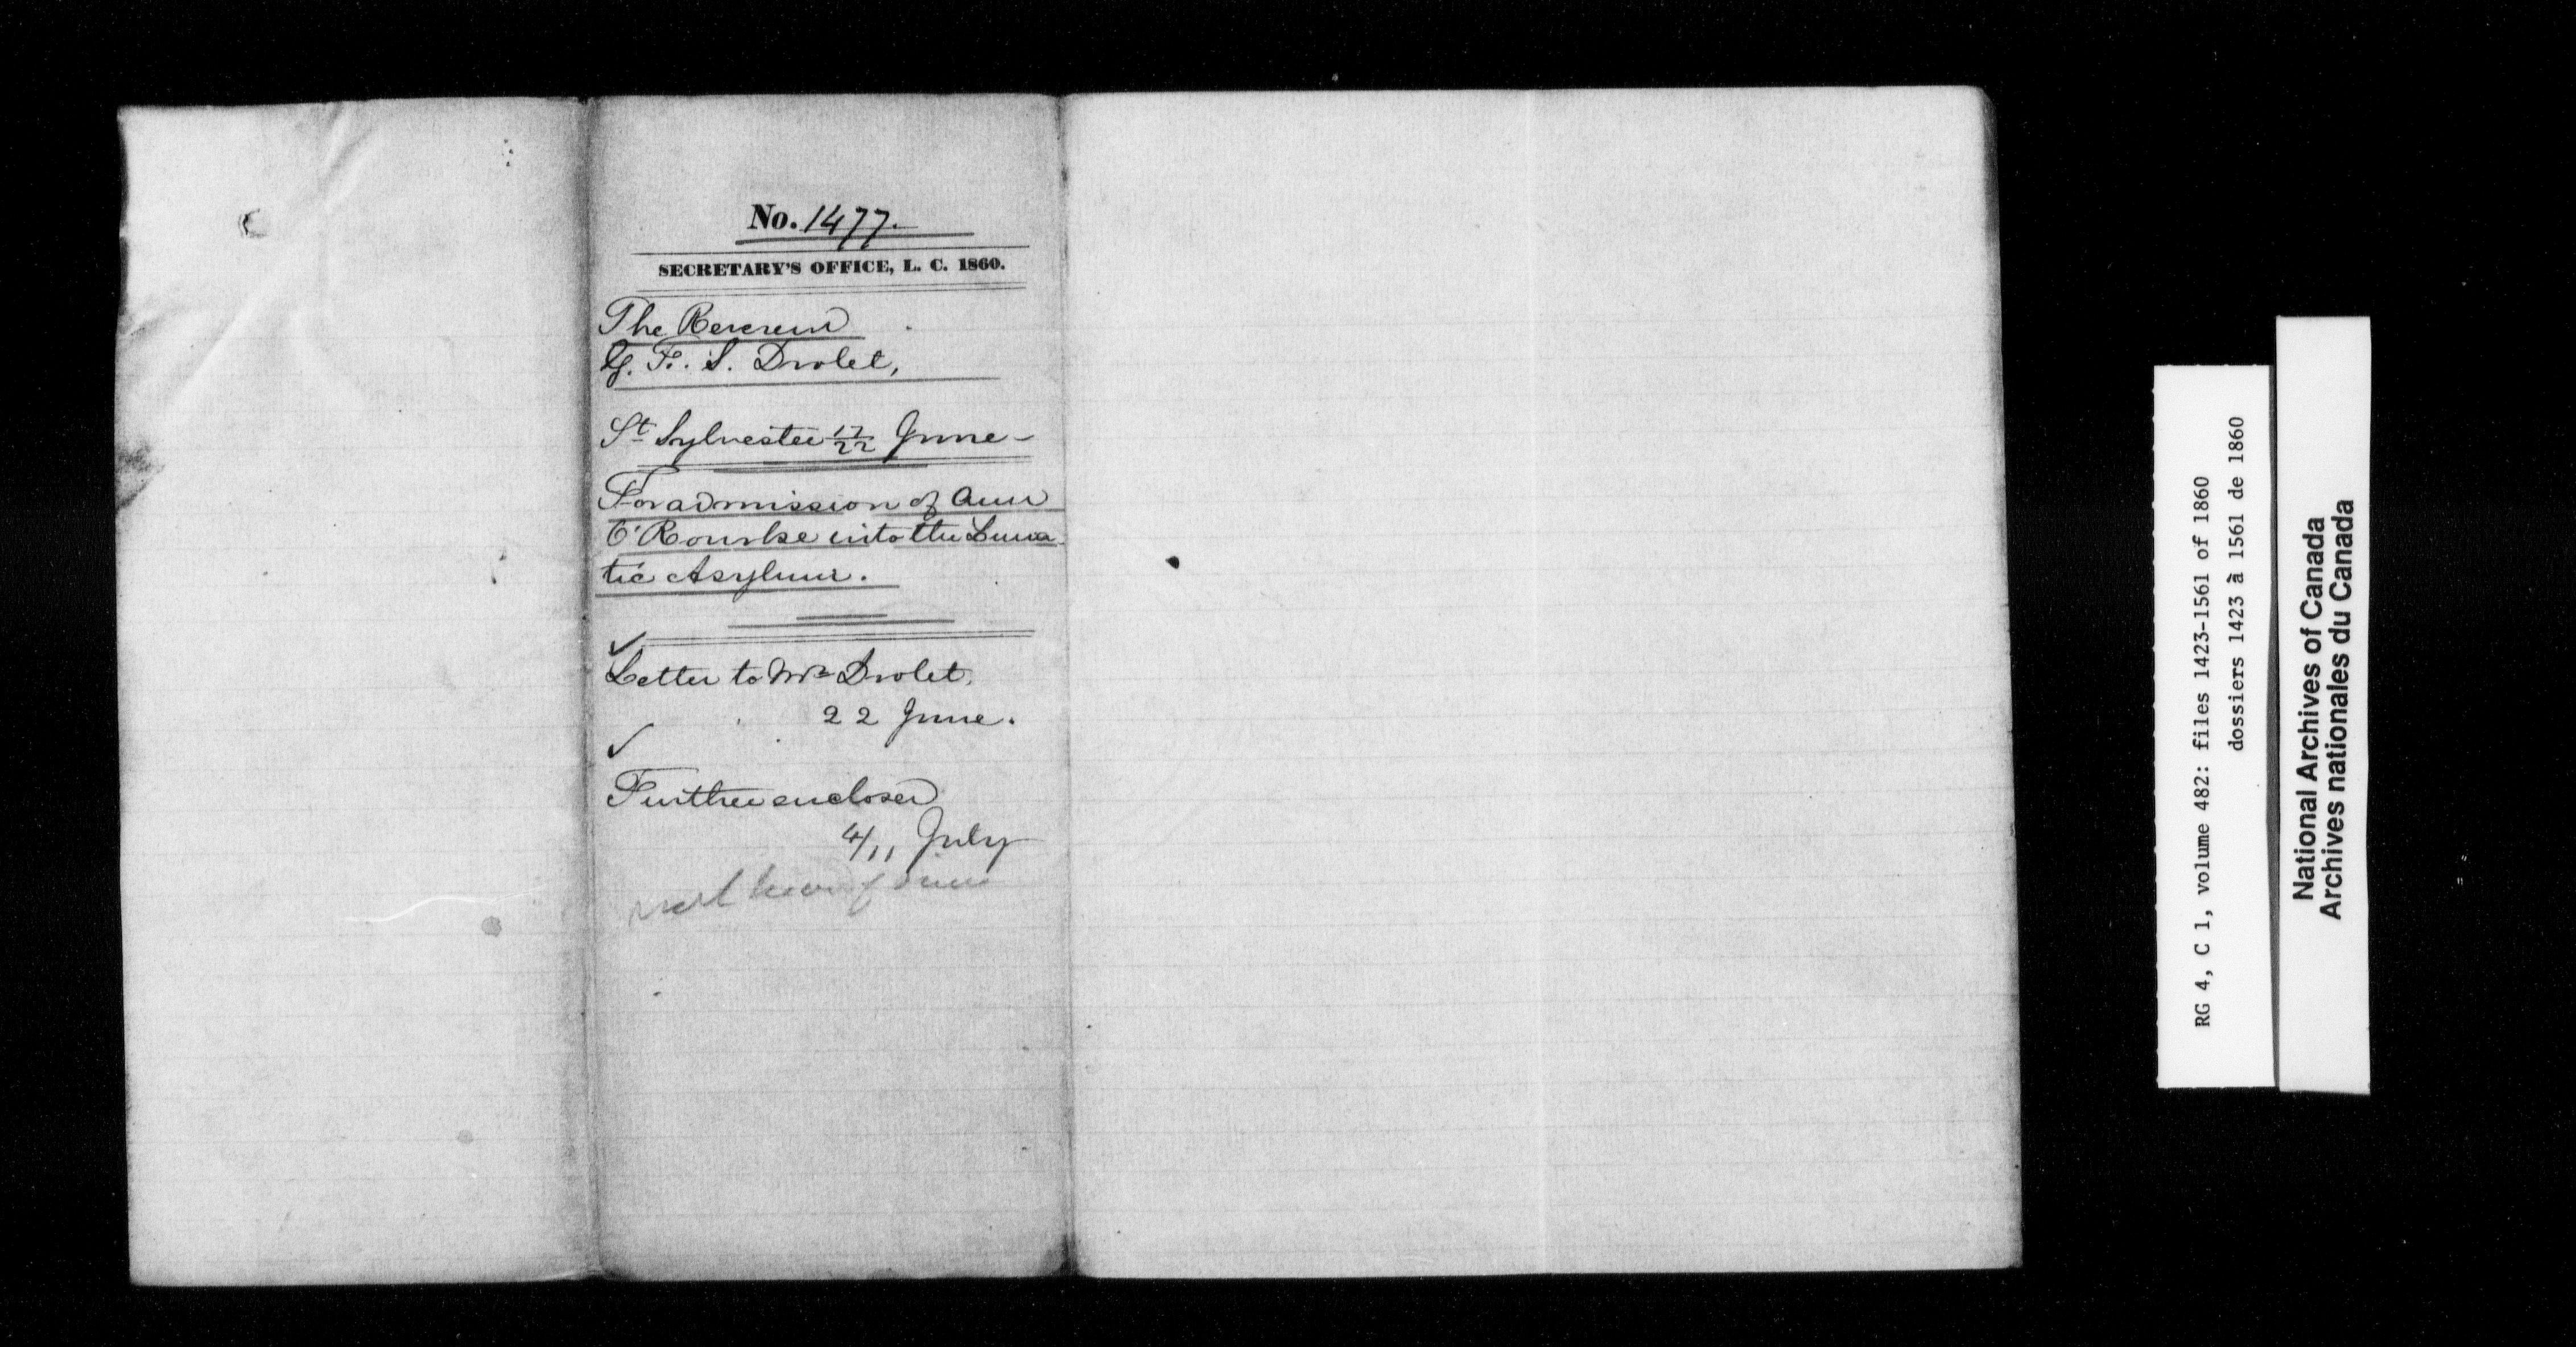 No. 1477.
SECRETARY'S OFFICE, L. C. 1860.
The Reverend
G. F. S. Drolet,
St Sylvester 17/22 June -
For admission of Ann
O'Rourke into the Luna
tic Asylum.
Letter to Mr Drolet.
22 June.
Further enclosed
4/11 July
RG 4, C 1, volume 482: files 1423-1561 of 1860
dossiers 1423 à 1561 de 1860
National Archives of Canada
Archives nationales du Canada